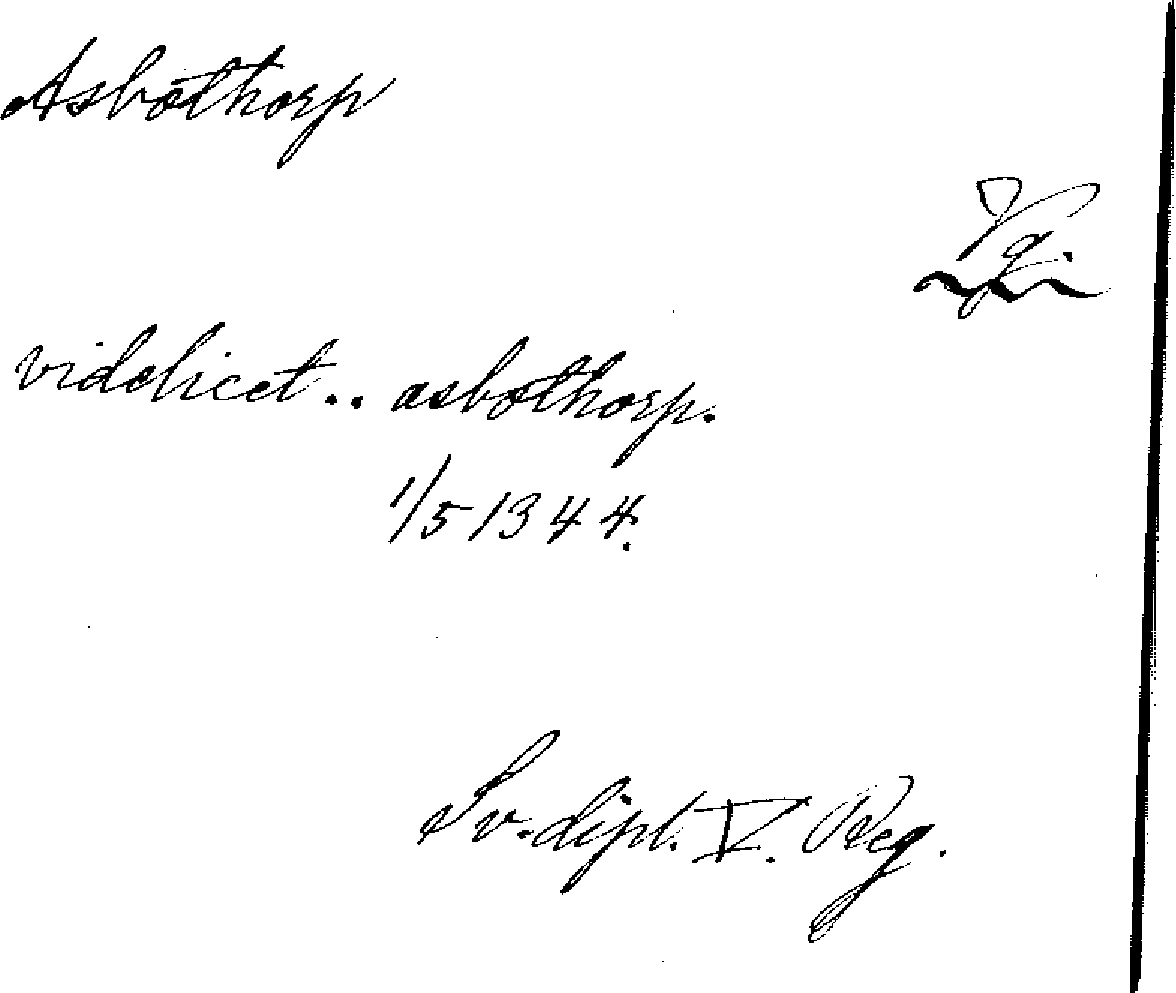 Asbothorp
Vg.
videlicet.. asbothorp.
1/5 1344.
Sv. dipl. V. Reg.